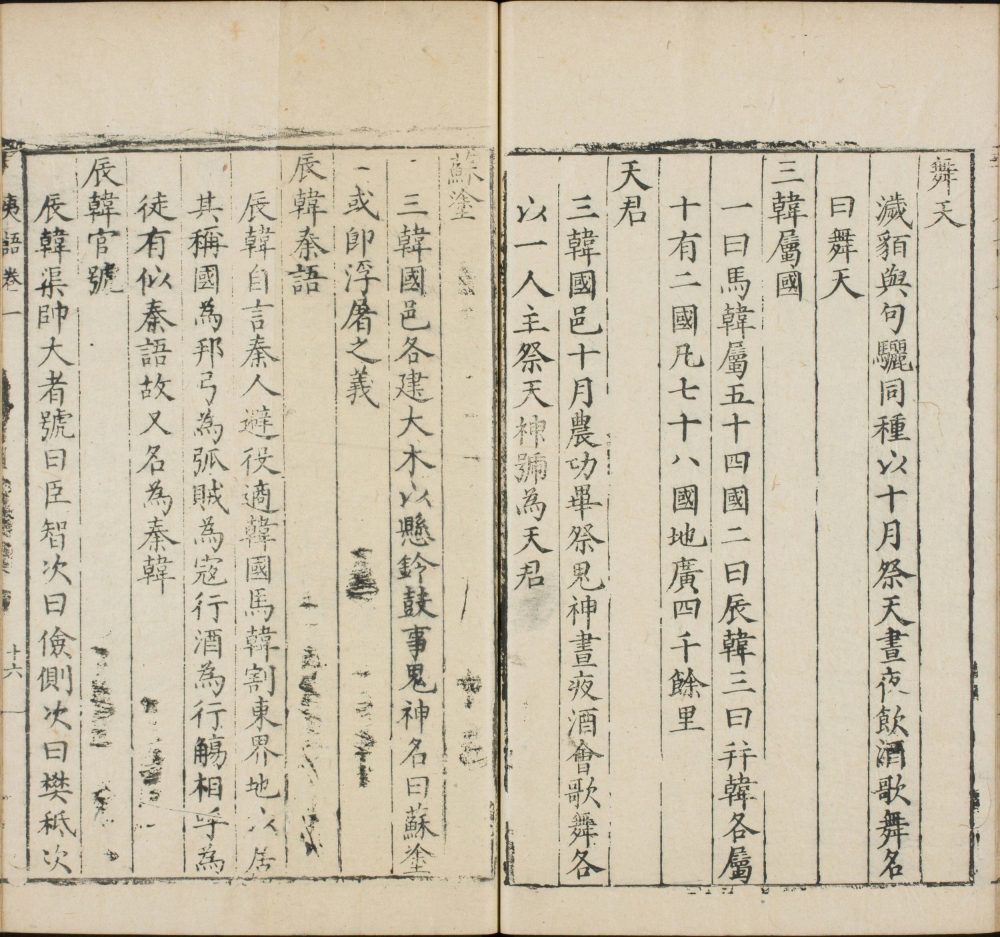 舞天
濊貊與句驪同種以十月祭天晝夜飲酒歌舞名
曰舞天
三韓屬國
一曰馬韓屬五十四國二曰辰韓三曰弁韓各屬
十有二國凡七十八國地廣四千餘里
天君
三韓國邑十月農功畢祭鬼神晝夜酒會歌舞各
以一人主祭天神號為天君
蘇塗
三韓國邑各建大木以懸鈴鼓事鬼神名曰蘇塗
或卽浮屠之義
辰韓秦語
辰韓自言秦人避役適韓國馬韓割東界地以居
其稱國為邦弓為弧賊為寇行酒為行觴相呼為
徒有似秦語故又名為秦韓
辰韓官號
辰韓渠帥大者號曰臣智次曰儉側次曰樊秪次
夷語卷一
十六